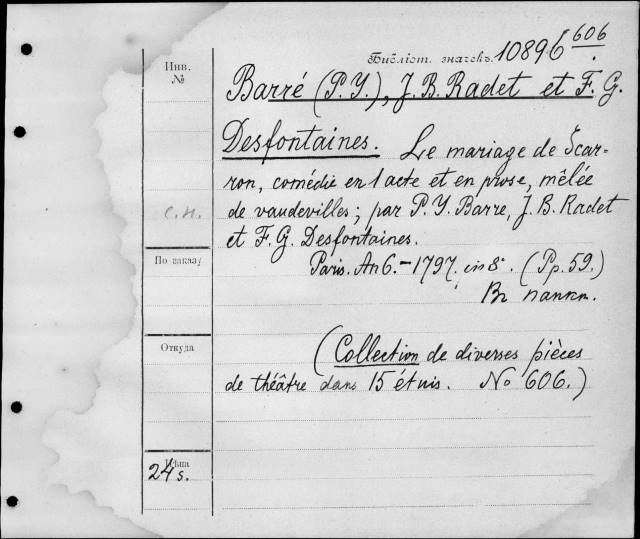 Библіот. значекъ. 10896 606.
Инв.
№
Barré (P.Y.), J.B. Radet et F.G.
Desfontaines. Le mariage de Scar=
ron, comédie en 1 acte et en prose, mêlée
с.н.
de vaudevilles; par P.Y. Barre, J.B. Radet
et F.G. Desfontaines.
По заказу
Paris. An 6.-1797. in 8°. (Pp. 59.)
Въ папкѣ.
Откуда
(Collection de diverses pièces
de théâtre dans 15 étuis. No 606.)
Цѣна
24 s.